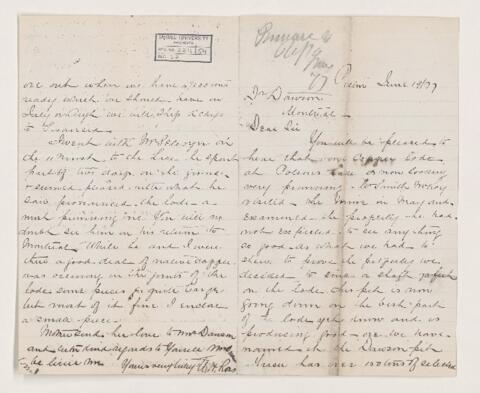 McGILL UNIVERSITY
ARCHIVES
ACC. NO. 2211/54
REF. 22
77
Pictou June 19/77
Dr Dawson
Montreal
Dear Sir
You will be pleased to
hear that our copper Lode
at Polsons Lake is now looking
very promising. Smith
visited the mine in May and
examined the property he had
not expected to see any thing
so good as what we had to
shew to prove the property we
decided to sink a shaft
on the Lode this pit is now
going down on the best part
of the lode yet known and is
producing good ore we have
named it the Dawson pit
has over tons of selected
ore out when we have
ready which we should have in
July or Augt we will ship
to Swansea
I went with Mr Selwyn on
the to the Lake he spent
part of two days on the ground
& seemed pleased with what he
saw pronounced the lode a
most promising You will no
doubt see him on his return to
Montreal While he and I were
there a good deal of native copper
was occurring in the joints of the
lode some pieces quite large
but most of it fine I enclose
a small piece.
Mother sends her love to Mrs Dawson
and with kind regards to Yourself
believe me Yours very truly Ross